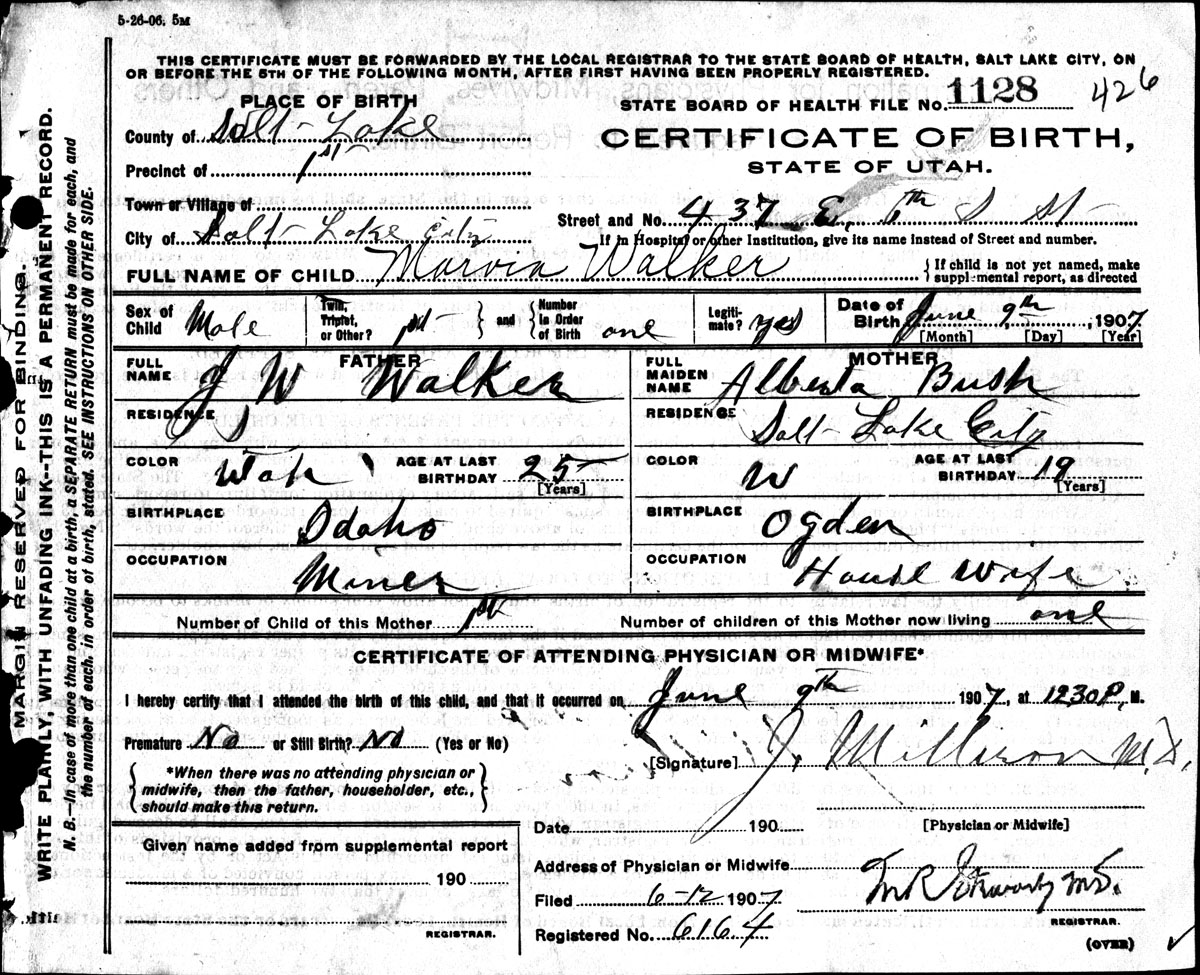 5-26-06. 5M
THIS CERTIFICATE MUST BE FORWARDED BY THE LOCAL REGISTRAR TO THE STATE BOARD OF HEALTH, SALT LAKE CITY, ON
OR BEFORE THE 5TH OF THE FOLLOWING MONTH, AFTER FIRST HAVING BEEN PROPERLY REGISTERED.
PLACE OF BIRTH
STATE BOARD OF HEALTH FILE No. 1128 426
County of Salt Lake
CERTIFICATE OF BIRTH,
Precinct of 1st
STATE OF UTAH.
Town or Village of
Street and No. 437 E. 6th S St
City of Salt Lake City
If in Hospital or other Institution, give its name instead of Street and number.
FULL NAME OF CHILD Marvin Walker
{ If child is not yet named, make
supplemental report, as directed
Sex of Child Male
Twin, Triplet, or Other? 1st
and
Number in Order of Birth one
Legitimate? yes
Date of Birth June 9th, 1907
[Month] [Day] [Year]
FATHER
FULL NAME J W Walker
MOTHER
FULL MAIDEN NAME Alberta Bush
RESIDENCE
RESIDENCE Salt Lake City
COLOR
AGE AT LAST BIRTHDAY 25
[Years]
COLOR W
AGE AT LAST BIRTHDAY 19
[Years]
BIRTHPLACE Idaho
BIRTHPLACE Ogden
OCCUPATION Miner
OCCUPATION House Wife
Number of Child of this Mother 1st
Number of children of this Mother now living one
CERTIFICATE OF ATTENDING PHYSICIAN OR MIDWIFE*
I hereby certify that I attended the birth of this child, and that it occurred on June 9th 1907, at 1230 P, M.
Premature No or Still Birth? No (Yes or No)
[Signature] J. M.D.
{ *When there was no attending physician or
midwife, then the father, householder, etc.,
should make this return. }
Date 190
[Physician or Midwife]
Given name added from supplemental report
190
REGISTRAR.
Address of Physician or Midwife
Filed 6-12 1907
M.D.
REGISTRAR.
Registered No. 6164
(OVER)
MARGIN RESERVED FOR BINDING.
WRITE PLAINLY, WITH UNFADING INK--THIS IS A PERMANENT RECORD.
N. B.--In case of more than one child at a birth, a SEPARATE RETURN must be made for each, and
the number of each, in order of birth, stated. SEE INSTRUCTIONS ON OTHER SIDE.